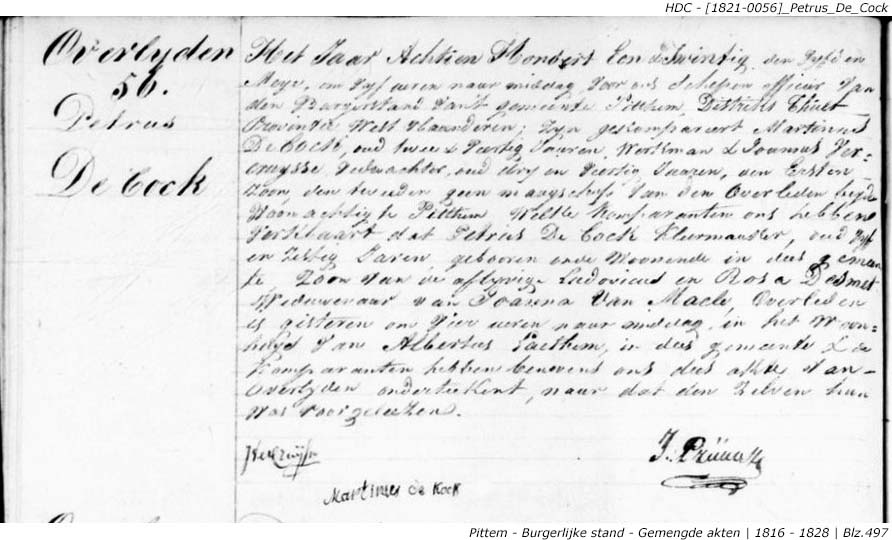 HDC - [1821-0056]_Petrus_De_Cock
Overlyden
56.
Petrus
De Cock
Het Jaar Achtien Hondert Een & Twintig den Vyfden
Meye, om Vyf uren naar middag Voor ons Schepen officier Van
den Burgerstand Van't gemeente Pitthem, Districts Thielt
Provintie West Vlaanderen; Zyn gekompareert Martinus
De Cock, oud twee & Veertig Jaaren, Werkman & Joannes Ver=
cruysse Veldwachter, oud dry en Veertig Jaaren, den Eersten
Zoon, den tweeden geen maagschap Van den Overleden beyde
Woonachtig te Pitthem Welke Komparanten ons hebben
Verklaart dat Petrus De Cock Kleermaeker, oud Vyf
en Zestig Jaren, geboren ende Woonende in dees gemeen
te, Zoon Van de aflyvige Ludovicus en Rosa Desmet
Weduwenaar Van Joanna Van Maele, Overleden
is gisteren om Vier uren naar middag, in het Woon=
huys Van Albertus in dees gemeente & de
Komparanten hebben benevens ons dees akte Van
Overlyden onderteekent, naar dat den Zelven hun
Was Voorgelezen.
Martinus de Kock
Pittem - Burgerlijke stand - Gemengde akten | 1816 - 1828 | Blz.497